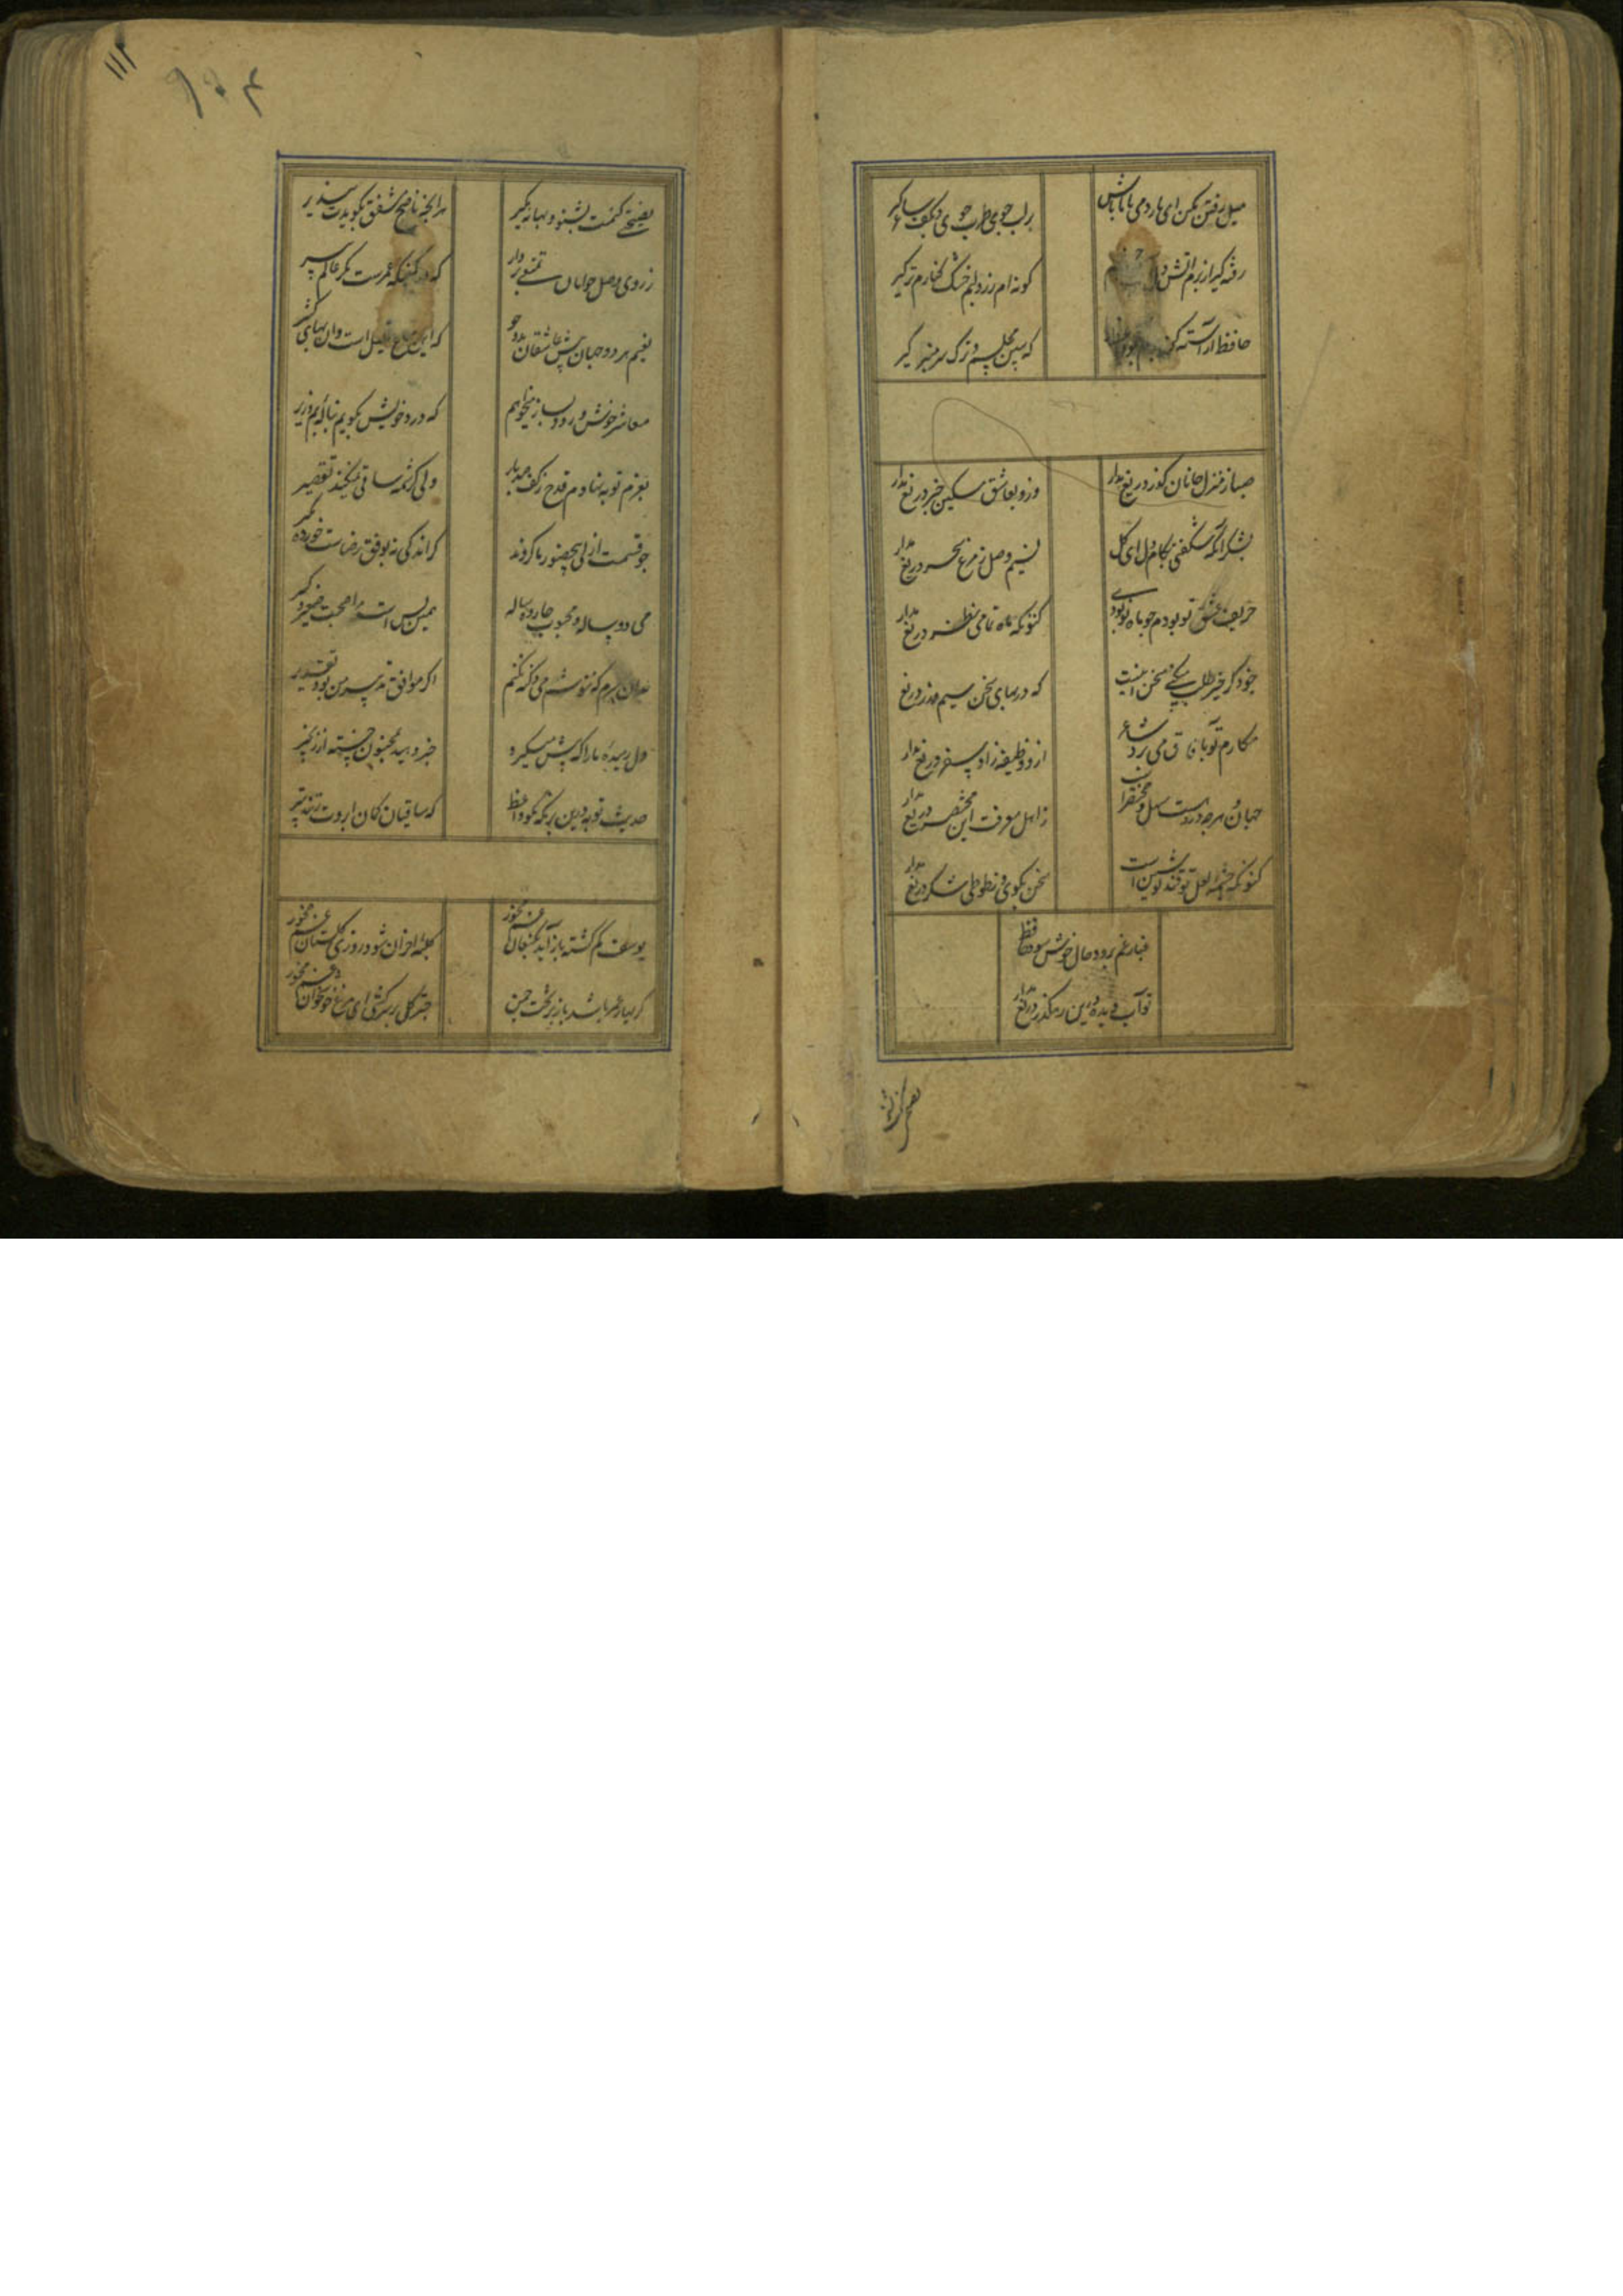 میل رفتن مکن ای یار دمی با ما باش
بر لب جوی طرب جوی و بکف ساغر گیر
رفته گیر از برم آتش
گونه ام زرد و لبم خشک و کنارم تر گیر
حافظ آراسته کن
که ببین مجلسم و ترک سر منبر گیر
صبا ز منزل جانان گذر دریغ مدار
وزو بعاشق مسکین خبر دریغ مدار
بشکر آنکه شکفتی بکام دل ای گل
نسیم وصل ز مرغ سحر دریغ مدار
حریف عشق تو بودم چو ماه نو بودی
کنونکه ماه تمامی نظر دریغ مدار
که در بهای سخن سیم و زر دریغ
مکارم تو بآفاق می برد شاعر
ازو وظیفه زاد سفر دریغ مدار
جهان و هر چه دروست سهل و مختصرست
ز اهل معرفت این مختصر دریغ مدار
کنونکه چشمه لعل تو قند نوشین است
سخن بگوی و ز طوطی شکر دریغ مدار
غبار غم برود حال خوش شود حافظ
تو آب دیده درین رهگذر دریغ مدار
نصیحتی کنمت بشنو و بهانه مگیر
۱۱۲
نصیحتی کنمت بشنو و بهانه مگیر
هر آنچه ناصح مشفق بگویدت بپذیر
ز روی وصل جوانان تمتعی بردار
که در کمینگه عمرست مکر عالم پیر
نعیم هر دو جهان پیش عاشقان بدو جو
که این متاع قلیل است وان بهای کثیر
معاشر خوش و رودی بساز میخواهم
که درد خویش بگویم بناله بم و زیر
بعزم توبه نهادم قدح ز کف صد بار
ولی کرشمه ساقی نمیکند تقصیر
چو قسمت ازلی بی حضور ما کردند
گر اندکی نه بوفق رضاست خورده مگیر
می دو ساله و محبوب چارده ساله
همین بس است مرا صحبت صغیر و کبیر
بران سرم که ننوشم می و گنه نکنم
اگر موافق تدبیر من بود تقدیر
دل رمیده ما را که پیش میگیرد
خبر دهید بمجنون جسته از زنجیر
حدیث توبه درین بزمگه مگو واعظ
که ساقیان کمان ابرویت زنند بتیر
یوسف گم گشته باز آید بکنعان غم مخور
کلبه احزان شود روزی گلستان غم مخور
گر بهار عمر باشد باز بر تخت چمن
چتر گل بر سر کشی ای مرغ خوشخوان غم مخور